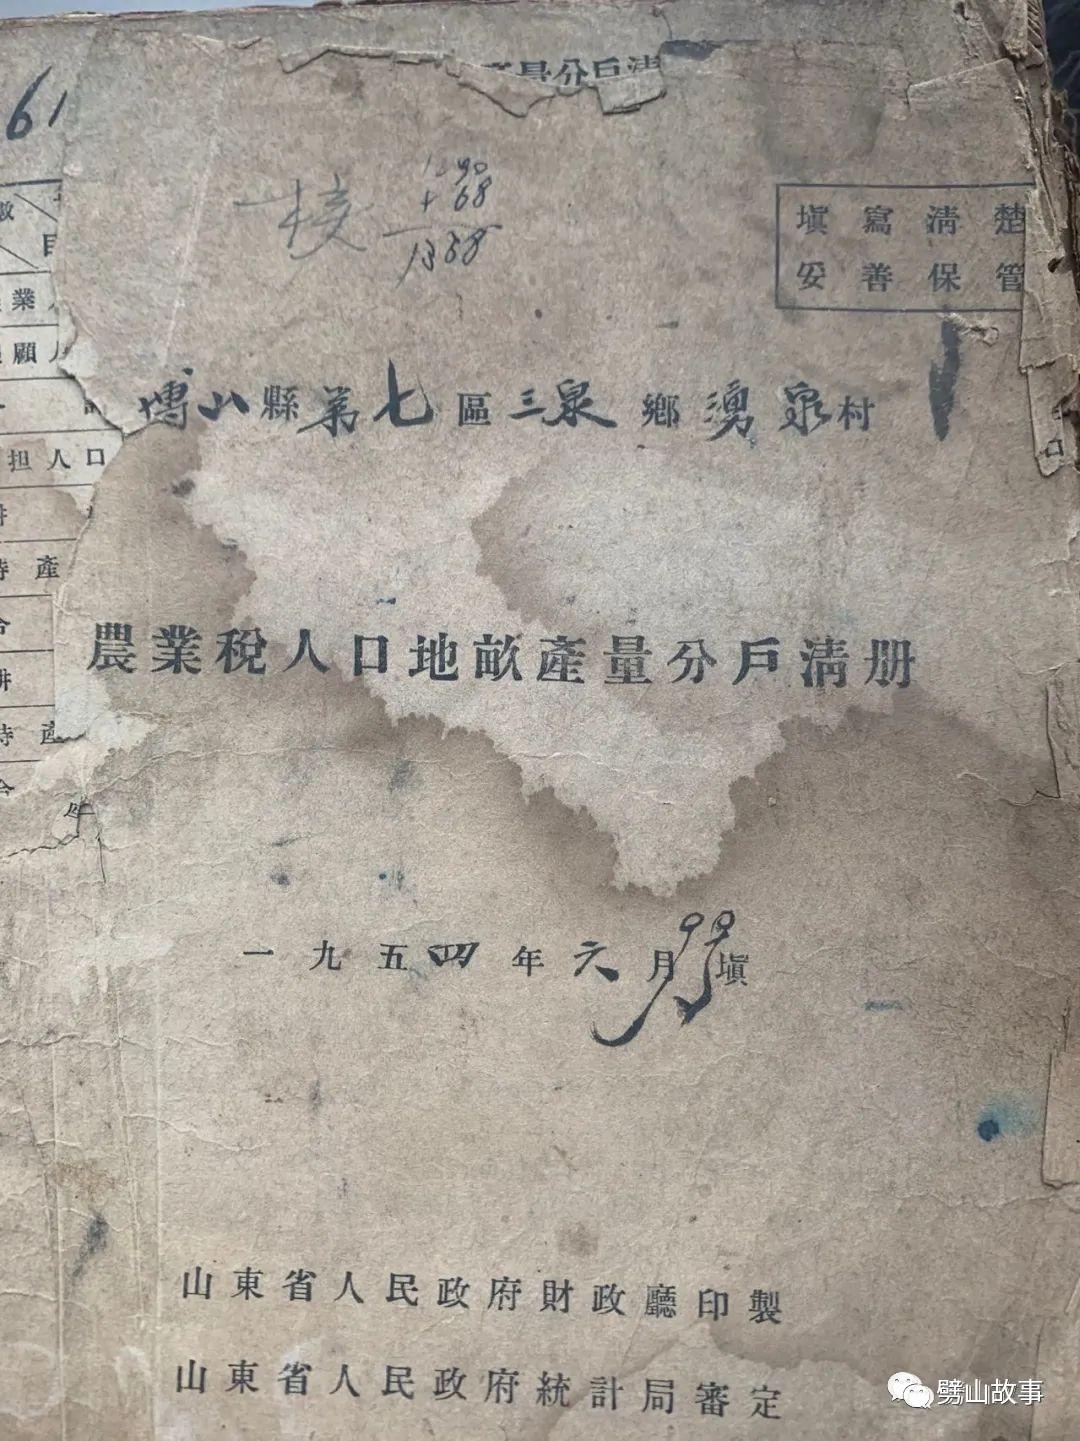 產量分戶清
61
一校
1290
+68
1358
填寫清楚
妥善保管
數
目
業人
顧人
擔人口
產
合
耕
特產
合
博山縣第七區三泉鄉湧泉村
農業稅人口地畝產量分戶清册
一九五四年六月 填
山東省人民政府財政廳印製
山東省人民政府統計局審定
劈山故事